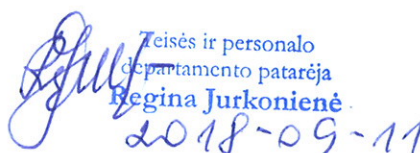 Teisės ir personalo
departamento patarėja
Regina Jurkonienė
2018-09-11